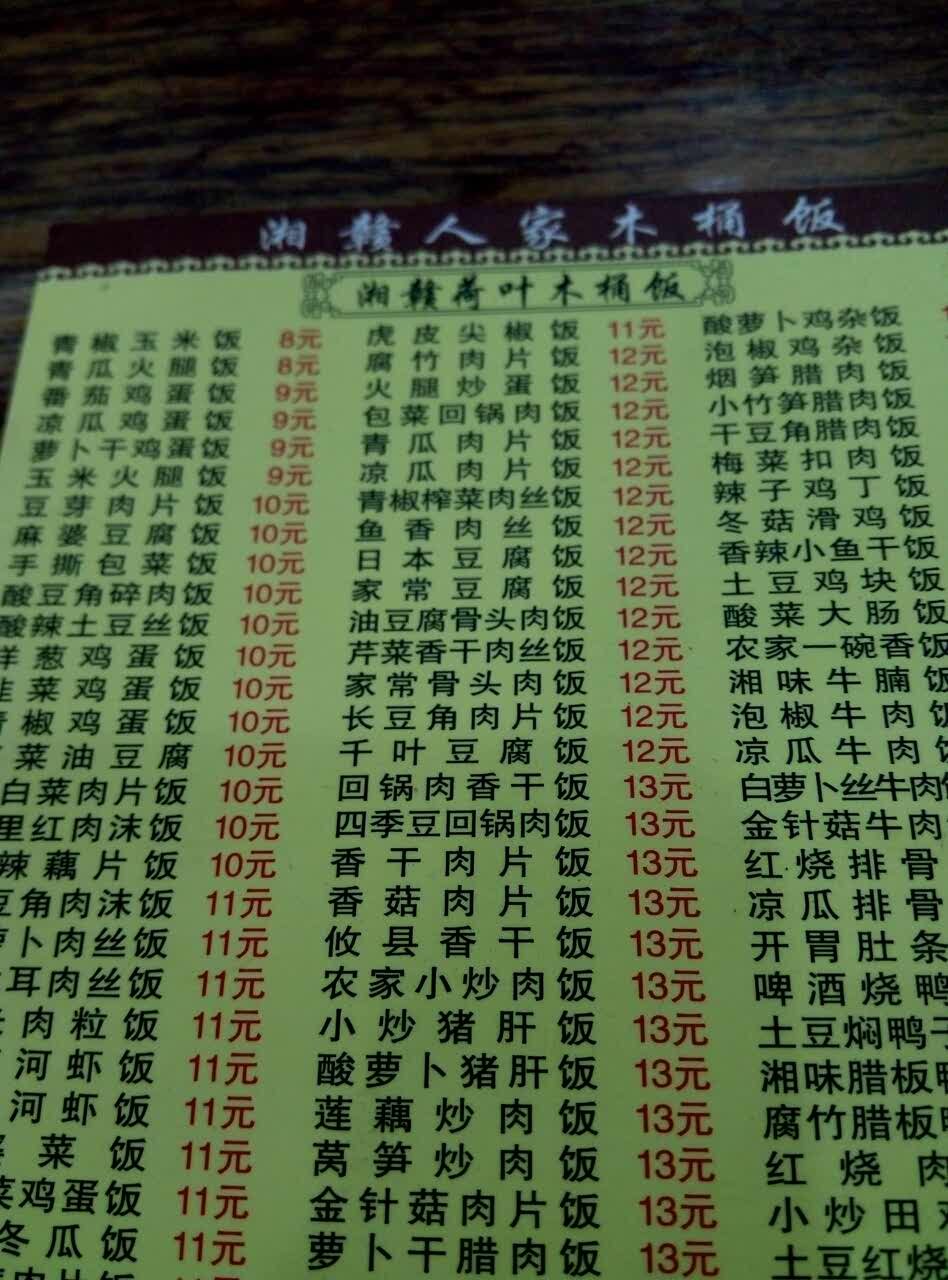 湘赣人家木桶饭
湘赣荷叶木桶饭
青椒玉米饭 8元
青瓜火腿饭 8元
番茄鸡蛋饭 9元
凉瓜鸡蛋饭 9元
萝卜干鸡蛋饭 9元
玉米火腿饭 9元
豆芽肉片饭 10元
麻婆豆腐饭 10元
手撕包菜饭 10元
酸豆角碎肉饭 10元
酸辣土豆丝饭 10元
洋葱鸡蛋饭 10元
韭菜鸡蛋饭 10元
椒鸡蛋饭 10元
菜油豆腐 10元
白菜肉片饭 10元
里红肉沫饭 10元
辣藕片饭 10元
豆角肉沫饭 11元
萝卜肉丝饭 11元
耳肉丝饭 11元
肉粒饭 11元
河虾饭 11元
河虾饭 11元
菜饭 11元
菜鸡蛋饭 11元
冬瓜饭 11元
肉片饭
虎皮尖椒饭 11元
腐竹肉片饭 12元
火腿炒蛋饭 12元
包菜回锅肉饭 12元
青瓜肉片饭 12元
凉瓜肉片饭 12元
青椒榨菜肉丝饭 12元
鱼香肉丝饭 12元
日本豆腐饭 12元
家常豆腐饭 12元
油豆腐骨头肉饭 12元
芹菜香干肉丝饭 12元
家常骨头肉饭 12元
长豆角肉片饭 12元
千叶豆腐饭 12元
回锅肉香干饭 13元
四季豆回锅肉饭 13元
香干肉片饭 13元
香菇肉片饭 13元
攸县香干饭 13元
农家小炒肉饭 13元
小炒猪肝饭 13元
酸萝卜猪肝饭 13元
莲藕炒肉饭 13元
莴笋炒肉饭 13元
金针菇肉片饭 13元
萝卜干腊肉饭 13元
酸萝卜鸡杂饭
泡椒鸡杂饭
烟笋腊肉饭
小竹笋腊肉饭
干豆角腊肉饭
梅菜扣肉饭
辣子鸡丁饭
冬菇滑鸡饭
香辣小鱼干饭
土豆鸡块饭
酸菜大肠饭
农家一碗香饭
湘味牛腩饭
泡椒牛肉饭
凉瓜牛肉饭
白萝卜丝牛肉饭
金针菇牛肉
红烧排骨
凉瓜排骨
开胃肚条
啤酒烧鸭
土豆焖鸭子
湘味腊板鸭
腐竹腊板鸭
红烧肉
小炒田鸡
土豆红烧